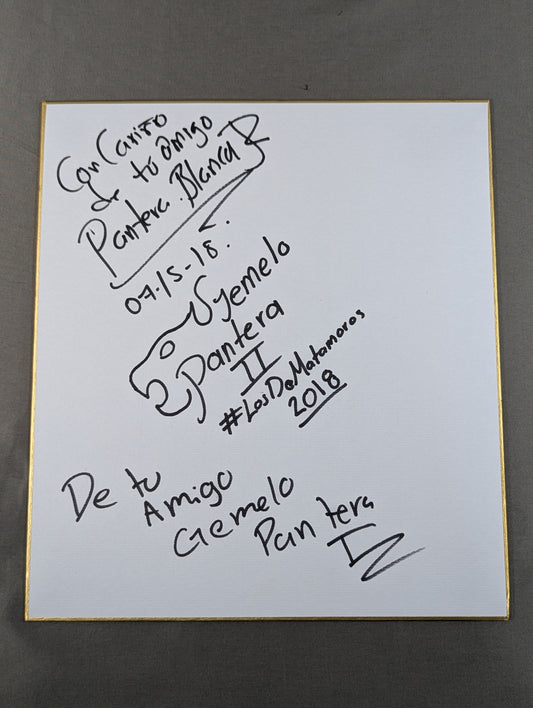 Con Cariño
de tu amigo
Pantera Blanca Jr
07-15-18.
Gemelo
Pantera
II
#LosDeMatamoros
2018
De tu
Amigo
Gemelo
Pantera
I